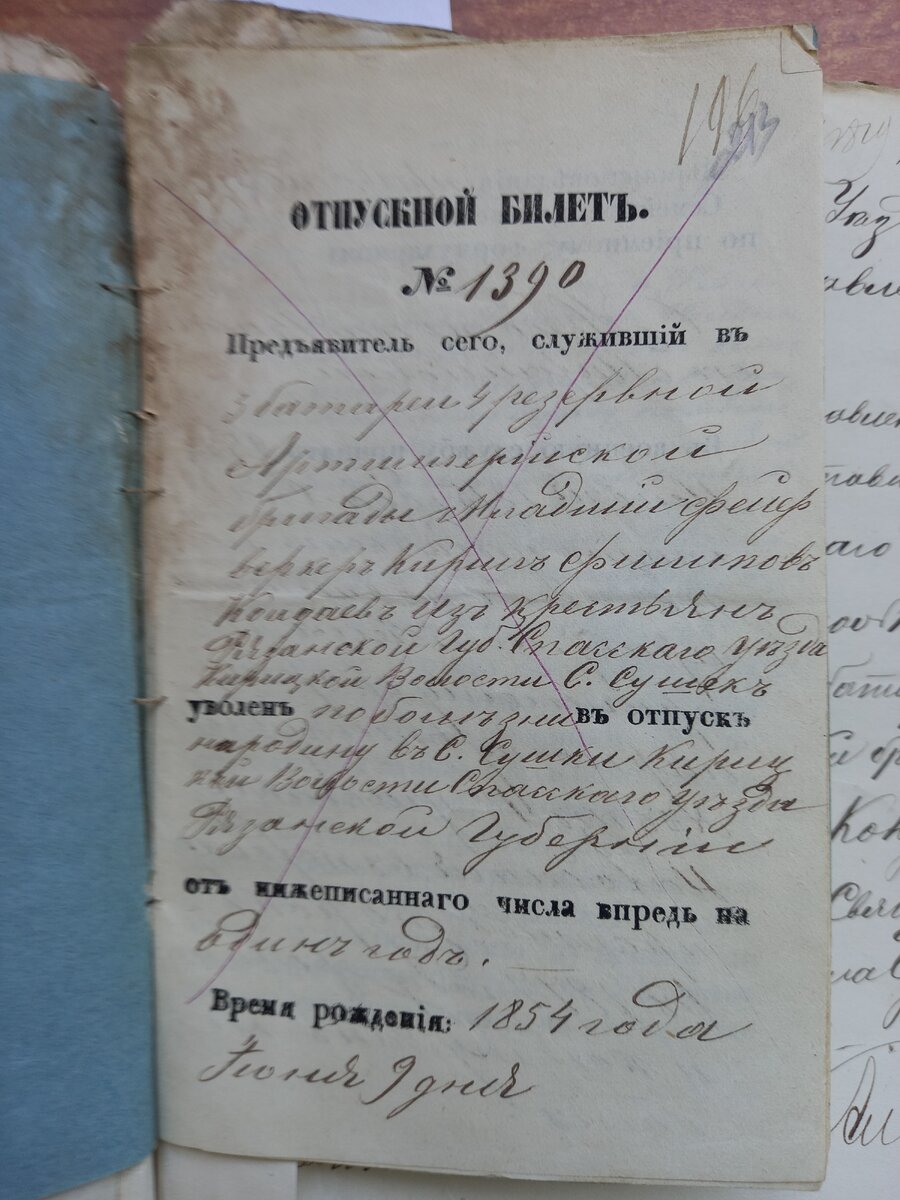 196
213
ОТПУСКНОЙ БИЛЕТЪ.
№ 1390
Предъявитель сего, служившій въ
3 батареи 4 резервной
Артиллерійской
бригады Младшій фейер
веркеръ Кирилъ Филиповъ
Кондаевъ изъ крестьянъ
Рязанской Губ. Спасскаго уѣзда
Кирицкой Волости С. Сушекъ
уволенъ по болѣзни въ отпускъ
народину въ С. Сушки Кириц
кой Волости Спасскаго уѣзда
Рязанской Губерніи
отъ нижеписаннаго числа впредь на
одинъ годъ.
Время рожденія: 1854 года
Іюня 9 дня